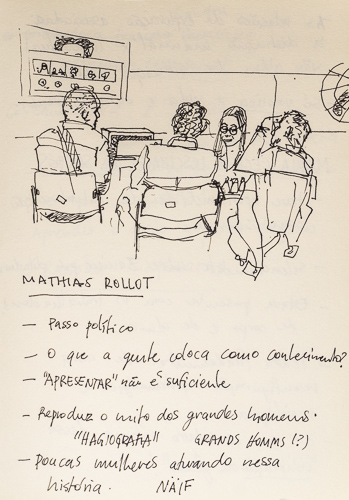 MATHIAS ROLLOT
— Passo político
— O que a gente coloca como conhecimento?
— "APRESENTAR" não é suficiente
— Reproduz o mito dos grandes homens.
"HAGIOGRAFIA" GRANDS HOMMS (?)
— Poucas mulheres atuando nessa
história. NAÏF